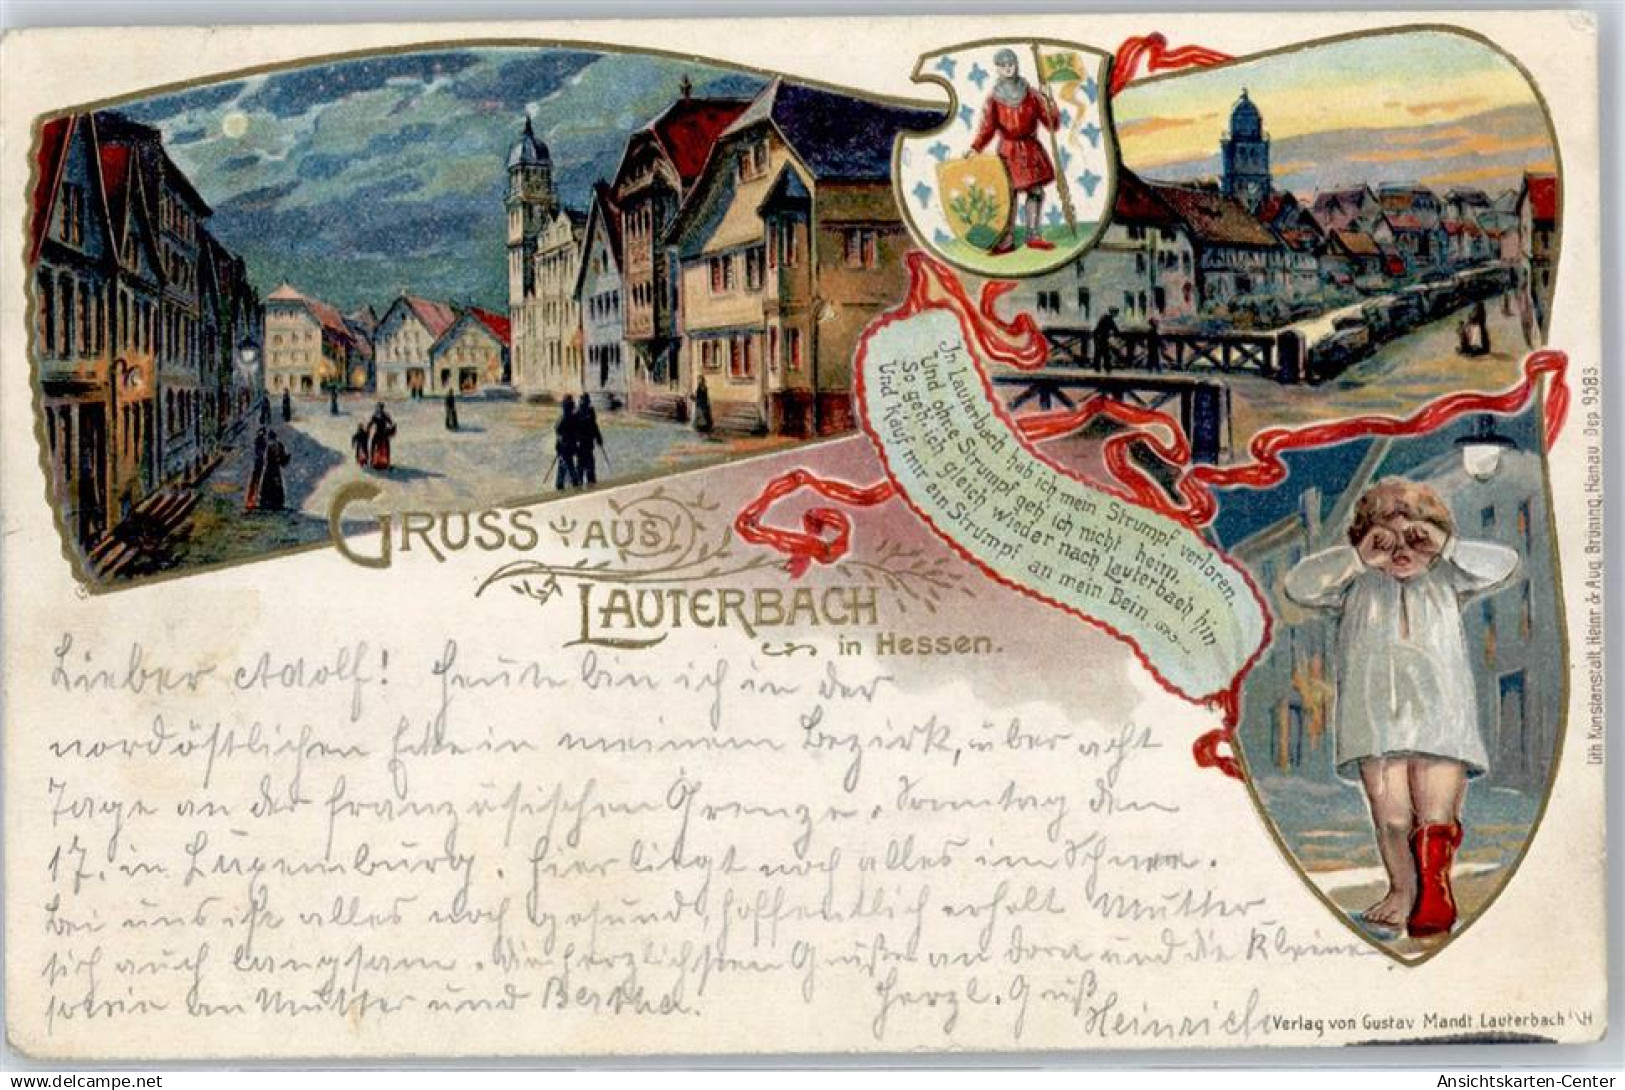 GRUSS AUS
LAUTERBACH
in Hessen.
In Lauterbach hab' ich mein Strumpf verloren,
Und ohne Strumpf geh' ich nicht heim,
So geh' ich gleich wieder nach Lauterbach hin
Und Kauf' mir ein Strumpf an mein Bein.
Lieber Adolf! Heute bin ich in der
nordöstlichen Ecke in meinem Bezirk, über acht
Tage an der französischen Grenze. Sonntag den
17. in Luxemburg. Hier liegt noch alles im Schnee.
Bei uns ist alles noch gesund, hoffentlich erholt Mutter
sich auch langsam. Die herzlichsten Grüße an Dora und die Kleine
sowie an Mutter und Bertha. Herzl. Gruß
Heinrich
Lith. Kunstanstalt Heinr. & Aug. Brüning, Hanau Dep. 9583.
Verlag von Gustav Mandt Lauterbach i/H
Ansichtskarten-Center